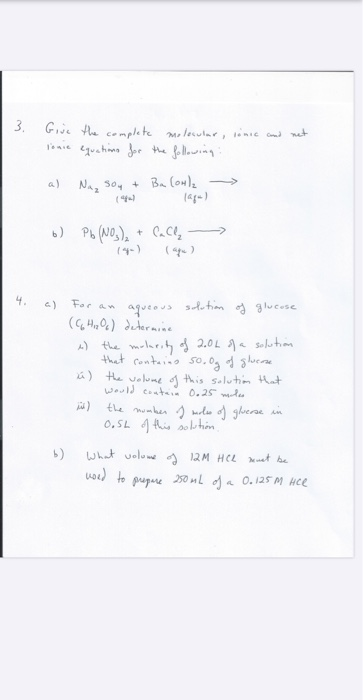 3. Give the complete molecular, ionic and net
ionic equations for the following:
a) Na₂ SO₄ + Ba(OH)₂ ⟶
(aq) (aq)
b) Pb(NO₃)₂ + CaCl₂ ⟶
(aq) (aq)
4. a) For an aqueous solution of glucose
(C₆H₁₂O₆) determine
i) the molarity of 2.0L of a solution
that contains 50.0g of glucose
ii) the volume of this solution that
would contain 0.25 moles
iii) the number of moles of glucose in
0.5L of this solution.
b) What volume of 12M HCl must be
used to prepare 250mL of a 0.125M HCl